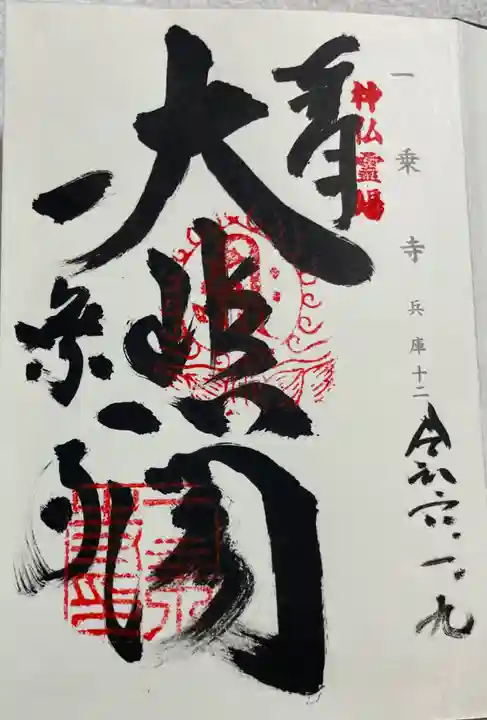 一乗寺 兵庫十二
令和六.一.九
神仏霊場
奉拝
大悲閣
一乗寺